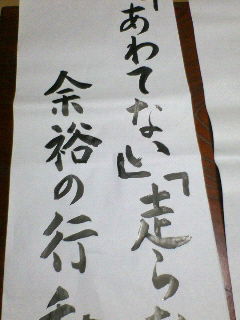 「あわてない」「走らな
余裕の行動